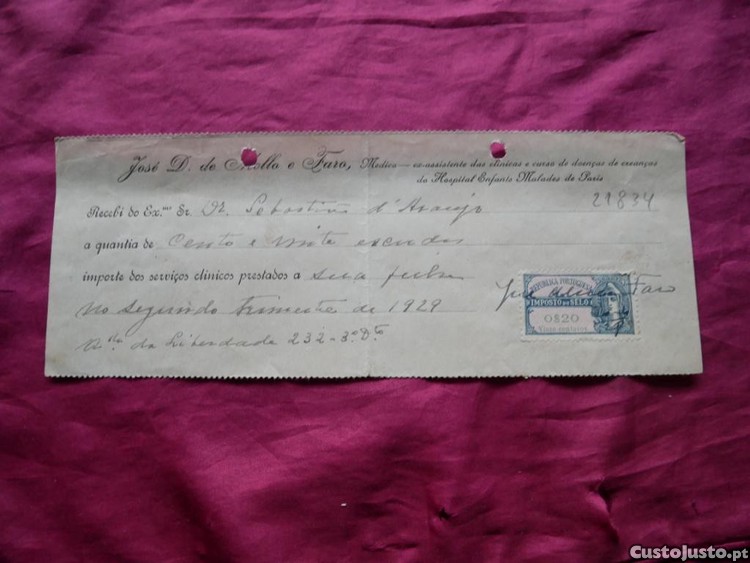 José D. de Mello e Faro, Medico — ex-assistente das clinicas e curso de doenças de creanças
do Hospital Enfants Malades de Paris
21834
Recebi do Ex.mo Sr. Dr. Sebastião d'Araujo
a quantia de Cento e vinte escudos
importe dos serviços clinicos prestados a sua
no segundo trimestre de 1929
da Liberdade 232-3º Dto
REPUBLICA PORTUGUESA
IMPOSTO DO SELO
0$20
José Faro
CustoJusto.pt